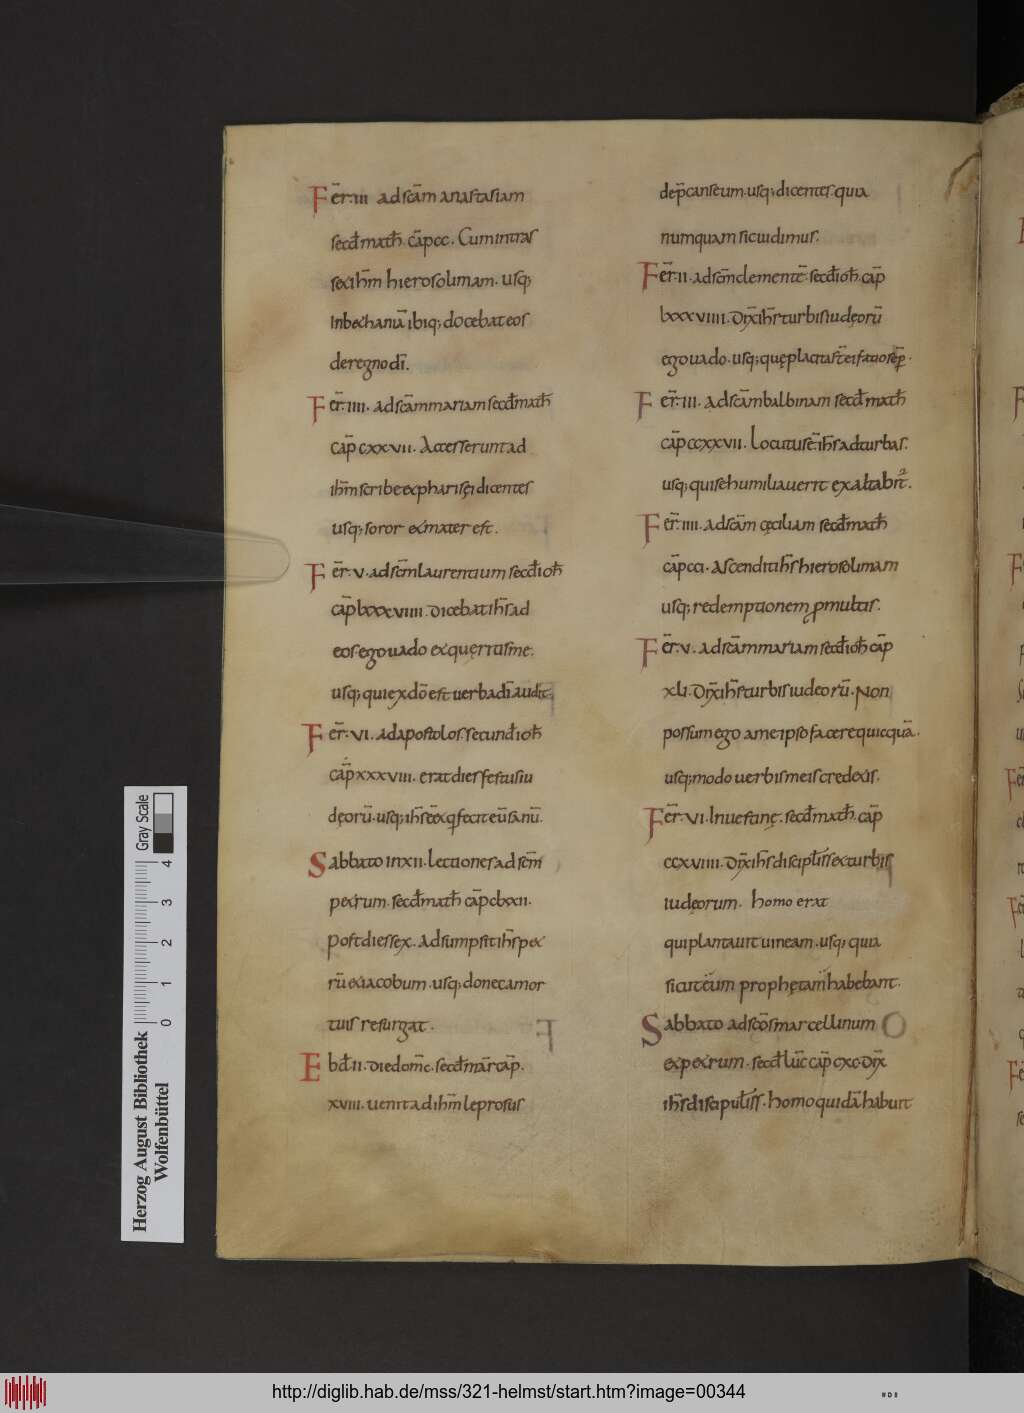 Fer̄·iii ad scām anastasiam
secd̄math̄. cāpcc. Cumintras
sex ihm̄ hierosolimam. usq;
Inbethaniā ibiq; docebateos
deregnodī.
Fer̄·iiii. adscāmmariamsecd̄math̄
cap̄ cxxvii. Accesseruntad
ihm̄scribe&pharisęidicentes
usq; soror &mater est.
Fer̄·v·adscm̄laurentiumsecd̄ioh̄
cap̄lxxxviiii·dicebatihs̄ad
eos·egouado &quęritisme.
usq; quiexdō est uerbadīaudit.
Fer̄·vi. adapostolos.secund̄ioh̄
cap̄xxxviii. eratdiesfestusiu
deorū.usq;ihs̄
Sabbato inxii.lectionesad scm̄
p&rum. secd̄math̄ cap̄clxxii.
postdiessex. adsumpsitihs̄pe
rū&iacobum.usq;donecamor
tuis resurgat.
Ebd̄·ii·diedom̄c·secd̄mar̄cap̄.
xviii. uenitadihm̄leprosus
dep̄canseum·usq;dicentes·quia
numquamsicuidimus.
Fer̄·ii·adscm̄clementē·secd̄ioh̄ cap̄
lxxxviiii.dix̄ihs̄turbisiudeorū
egouado.usq;quęplacita
Fer̄·iii·adscāmbalbinam secd̄math̄
cap̄ccxxvii.locutusē·ihs̄adturbas.
usq;quisehumiliauerit exaltabit̄.
Fer̄·iiii·adscām cęciliam secd̄math̄
cap̄cci·ascenditihs̄hierosolimam
usq;redemptionem p̱multis.
Fer̄·v·adscāmmariamsecd̄ioh̄ cap̄
xli·dix̄ihs̄turbisiudeorū·Non
possumego ameipsofacerequicquā.
usq;modo uerbismeiscred&is.
Fer̄·vi·Inuestinę·secd̄math̄ cap̄
ccxviiii·dix̄ihs̄discipulis̄&turbis
iudęorum. homo erat
quiplantauituineam·usq;quia
sicuteum prophętamhabebant.
Sabbato adscōsmarcellinum
&p&rum. secd̄ luc̄ cap̄cxc·dix̄
ihs̄discipulis̄·homoquidāhabuit
Gray Scale
0 1 2 3 4
Herzog August Bibliothek
Wolfenbüttel
http://diglib.hab.de/mss/321-helmst/start.htm?image=00344